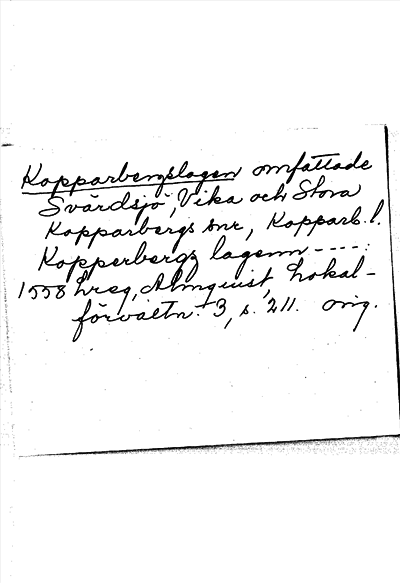 Kopparbergslagen omfattade
Svärdsjö, Vika och Stora
Kopparbergs snr, Kopparb. l.
Kopperbergz lagenn ----:
1558 hreg, Almquist, Lokal-
förvaltn. 3, s. 211. orig.